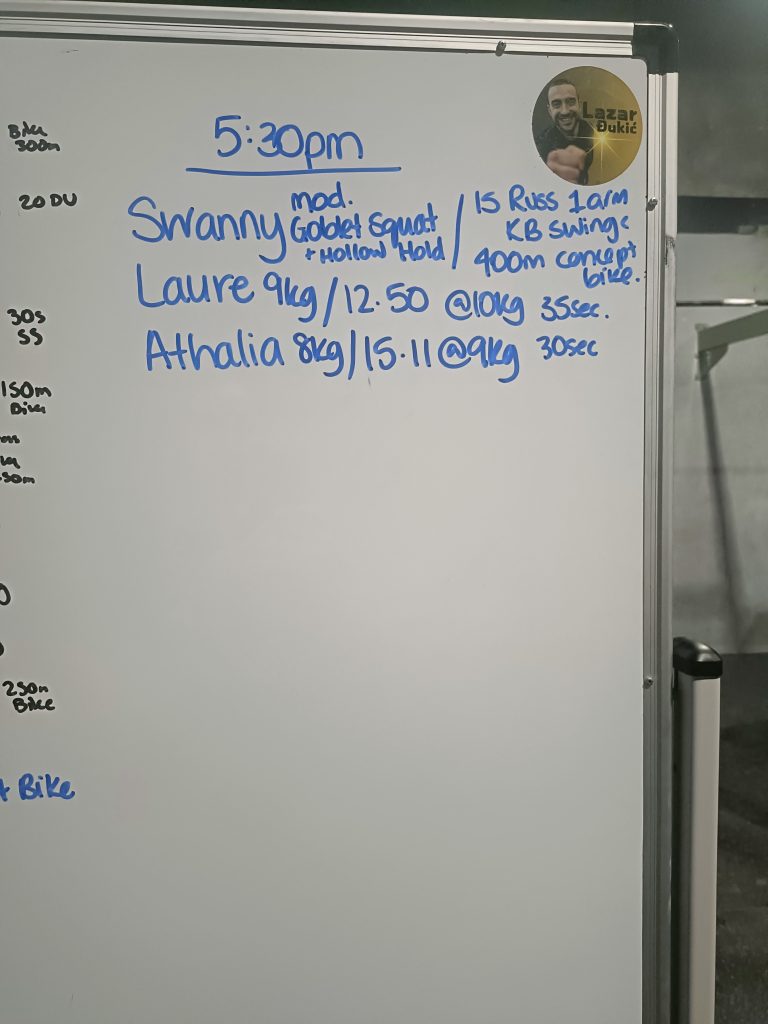 5:30pm
Lazar
Đukić
Swanny mod. Goblet Squat + Hollow Hold / 15 Russ 1 arm KB Swings 400m concept bike.
Laure 9kg / 12.50 @10kg 35sec.
Athalia 8kg / 15.11 @9kg 30sec
Bike
300m
20 DU
30s
SS
150m
Bike
50m
250m
Bike
+ Bike